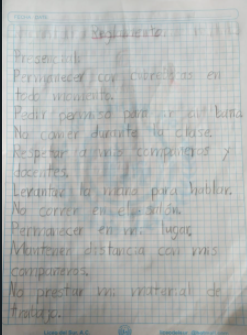 Reglamento
Presencial.
Permanecer con cubrebocas en
todo momento.
Pedir permiso para ir al baño
No comer durante la clase.
Respetar a mis compañeros y
docentes.
Levantar la mano para hablar.
No correr en el salón.
Permanecer en mi lugar,
Mantener distancia con mis
compañeros.
No prestar mi material de
trabajo.